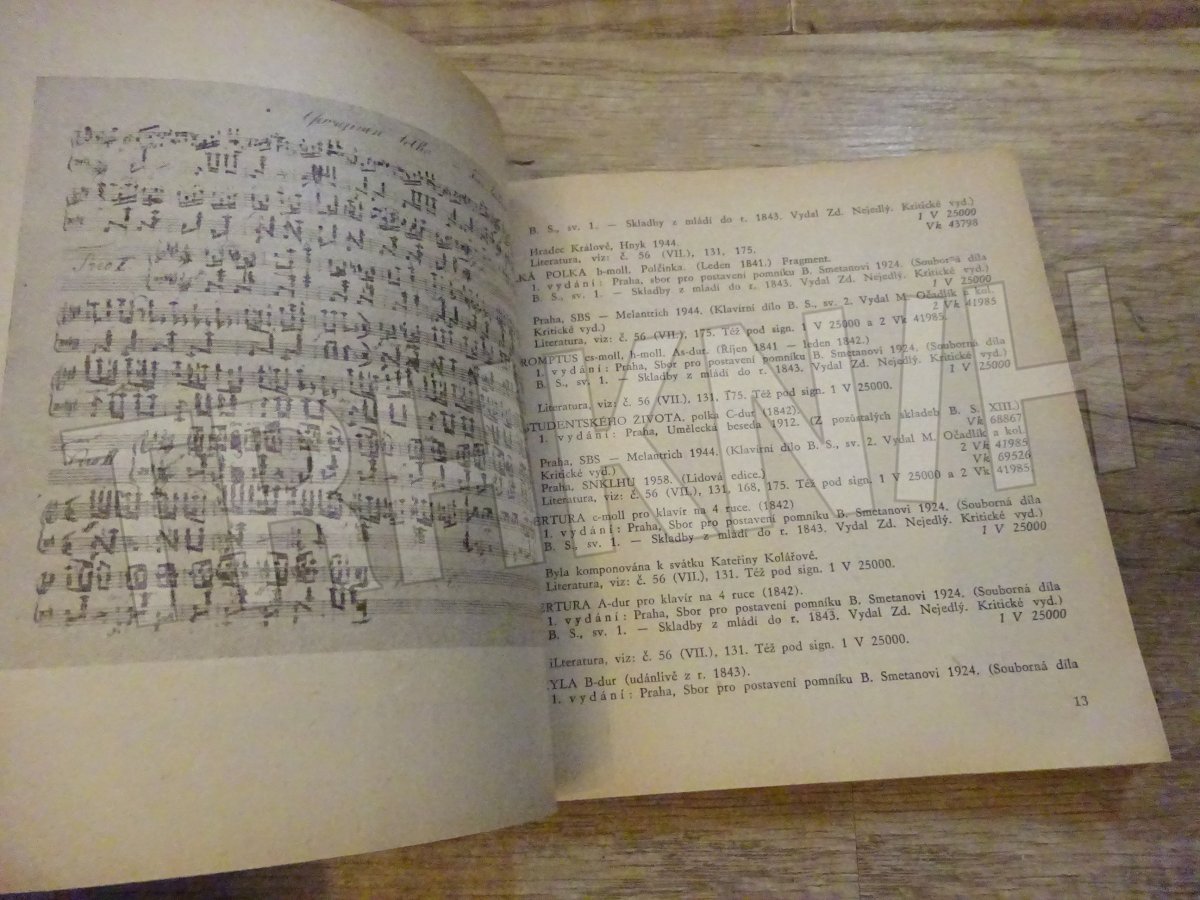 Trio I
Trio II
B. S., sv. 1. — Skladby z mládí do r. 1843. Vydal Zd. Nejedlý. Kritické vyd.)
1 V 25000
Vk 43798
Hradec Králové, Hnyk 1944.
Literatura, viz: č. 56 (VII.), 131, 175.
KÁ POLKA b-moll, Polčinka. (Leden 1841.) Fragment.
1. vydání: Praha, sbor pro postavení pomníku B. Smetanovi 1924. (Souborná díla
B. S., sv. 1. — Skladby z mládí do r. 1843. Vydal Zd. Nejedlý. Kritické vyd.)
1 V 25000
Praha, SBS — Melantrich 1944. (Klavírní dílo B. S., sv. 2. Vydal M. Očadlík a kol.
Kritické vyd.)
2 Vk 41985
Literatura, viz: č. 56 (VII.), 175. Též pod sign. 1 V 25000 a 2 Vk 41985.
ROMPTUS es-moll, h-moll, As-dur. (Říjen 1841 — leden 1842.)
1. vydání: Praha, Sbor pro postavení pomníku B. Smetanovi 1924. (Souborná díla
B. S., sv. 1. — Skladby z mládí do r. 1843. Vydal Zd. Nejedlý. Kritické vyd.)
1 V 25000
Literatura, viz: č. 56 (VII.), 131, 175. Též pod sign. 1 V 25000.
STUDENTSKÉHO ŽIVOTA, polka C-dur (1842).
1. vydání: Praha, Umělecká beseda 1912. (Z pozůstalých skladeb B. S. XIII.)
Vk 68867
Praha, SBS — Melantrich 1944. (Klavírní dílo B. S., sv. 2. Vydal M. Očadlík a kol.
Kritické vyd.)
2 Vk 41985
Praha, SNKLHU 1958. (Lidová edice.)
Vk 69526
Literatura, viz: č. 56 (VII.), 131, 168, 175. Též pod sign. 1 V 25000 a 2 Vk 41985.
ERTURA c-moll pro klavír na 4 ruce. (1842)
1. vydání: Praha, Sbor pro postavení pomníku B. Smetanovi 1924. (Souborná díla
B. S., sv. 1. — Skladby z mládí do r. 1843. Vydal Zd. Nejedlý. Kritické vyd.)
1 V 25000
Byla komponována k svátku Kateřiny Kolářové.
Literatura, viz: č. 56 (VII.), 131. Též pod sign. 1 V 25000.
ERTURA A-dur pro klavír na 4 ruce (1842).
1. vydání: Praha, Sbor pro postavení pomníku B. Smetanovi 1924. (Souborná díla
B. S., sv. 1. — Skladby z mládí do r. 1843. Vydal Zd. Nejedlý. Kritické vyd.)
1 V 25000
iLteratura, viz: č. 56 (VII.), 131. Též pod sign. 1 V 25000.
YLA B-dur (udánlivě z r. 1843).
1. vydání: Praha, Sbor pro postavení pomníku B. Smetanovi 1924. (Souborná díla
13